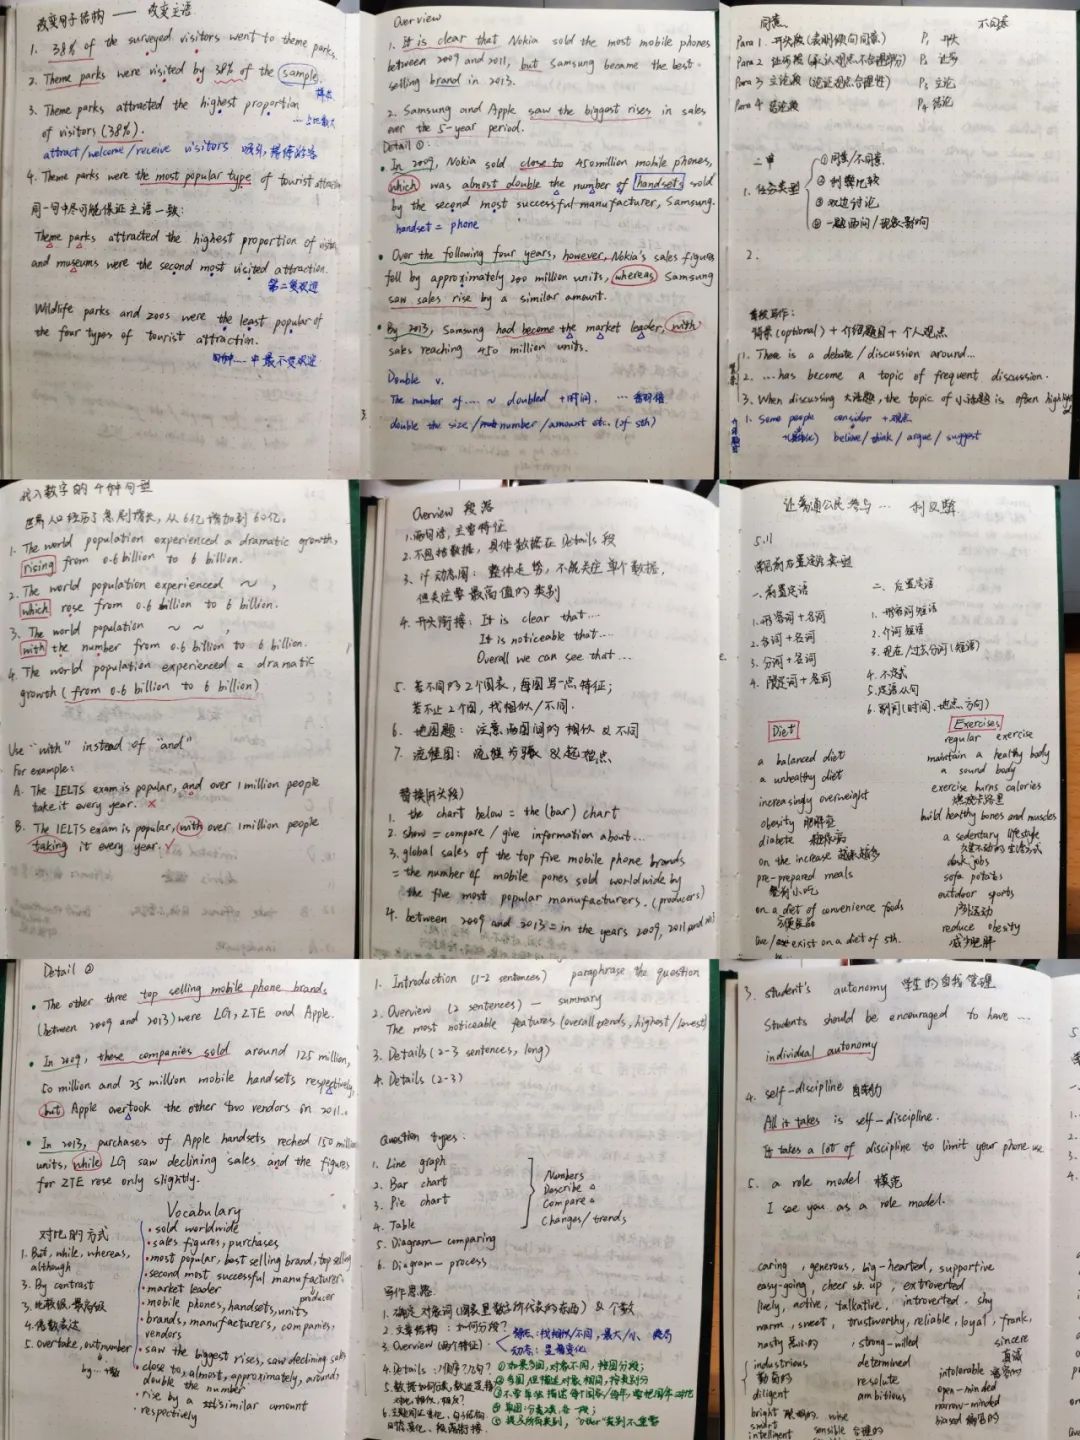 改变句子结构 —— 改变主语
1. 38% of the surveyed visitors went to theme parks.
2. Theme parks were visited by 38% of the sample.
3. Theme parks attracted the highest proportion
of visitors (38%).
attract/welcome/receive visitors 吸引,接待游客
4. Theme parks were the most popular type of tourist
同一句中尽可能保证主语一致:
Theme parks attracted the highest proportion of
and museums were the second most visited attraction.
第二受欢迎
Wildlife parks and zoos were the least popular of
the four types of tourist attraction.
四种……中最不受欢迎
Overview
1. It is clear that Nokia sold the most mobile phones
between 2009 and 2011, but Samsung became the best
selling brand in 2013.
2. Samsung and Apple saw the biggest rises in sales
over the 5-year period.
Detail ①:
• In 2009, Nokia sold close to 450 million mobile phones,
which was almost double the number of handsets sold
by the second most successful manufacturer, Samsung.
handset = phone
• Over the following four years, however, Nokia's sales figures
fell by approximately 200 million units, whereas Samsung
saw sales rise by a similar amount.
• By 2013, Samsung had become the market leader, with
sales reaching 450 million units.
Double v.
The number of.... ~ doubled +时间.
double the size / number / amount etc. (of sth)
同意 不同意
Para 1. 开头段 (表明倾向同意) P1 开头
Para 2 让步段 P2 让步
Para 3 立论段 P3 立论
Para 4 结论段 P4 结论
1. 任务类型
① 同意/不同意
② 利弊比较
③ 双边讨论
2.
首段写作:
背景 (optional) + 介绍题目 + 个人观点
1. There is a debate / discussion around...
2. ...has become a topic of frequent discussion.
3. When discussing 大话题, the topic of 小话题 is often
1. Some people consider +观点
believe / think / argue / suggest
数字的4种句型
世界人口经历了急剧增长, 从6亿增加到60亿.
1. The world population experienced a dramatic growth,
rising from 0.6 billion to 6 billion.
2. The world population experienced ~,
which rose from 0.6 billion to 6 billion.
3. The world population ~ ~,
with the number from 0.6 billion to 6 billion.
4. The world population experienced a dramatic
growth (from 0.6 billion to 6 billion)
Use "with" instead of "and"
For example:
A. The IELTS exam is popular, and over 1 million people
take it every year. ×
B. The IELTS exam is popular, with over 1 million people
taking it every year. ✓
Overview 段落
1. 两句话, 主要特征
2. 不包括数据, 具体数据在Details段
3. if 动态图: 整体走势, 不能关注单个数据,
但关注要最高值的类别
4. 开头衔接: It is clear that....
It is noticeable that....
Overall we can see that...
5. 若不同的2个图表, 每图写一点特征;
若不止2个图, 找相似/不同.
6. 地图题: 注意两图间的相似 & 不同
7. 流程图: 流程步骤 & 起始点
替换(开头段)
1. the chart below = the (bar) chart
2. show = compare / give information about...
3. global sales of the top five mobile phone brands
= the number of mobile pones sold worldwide by
the five most popular manufacturers. (producers)
4. between 2009 and 2013 = in the years 2009, 2011 and
让普通公民参与 … 利&弊
5.11
一. 前置定语 二. 后置定语
1. 形容词+名词 1. 形容词短语
2. 名词+名词 2. 介词短语
3. 分词+名词 3. 现在/过去分词(短语)
4. 限定词+名词 4. 不定式
5. 定语从句
6. 副词(时间、地点、方向)
Diet Exercises
regular exercise
a balanced diet maintain a healthy body
a unhealthy diet a sound body
increasingly overweight exercise burns calories
燃烧卡路里
obesity 肥胖症 build healthy bones and muscles
diabete 糖尿病 a sedentary lifestyle
久坐不动的生活方式
on the increase 越来越多 desk jobs
pre-prepared meals sofa potatos
outdoor sports
on a diet of convenience foods 户外运动
方便食品 reduce obesity
live / exist on a diet of sth. 减少肥胖
Detail ②
• The other three top selling mobile phone brands
(between 2009 and 2013) were LG, ZTE and Apple.
• In 2009, these companies sold around 125 million,
50 million and 25 million mobile handsets respectively,
but Apple overtook the other two vendors in 2011.
• In 2013, purchases of Apple handsets reched 150 million
units, while LG saw declining sales and the figures
for ZTE rose only slightly.
对比的方式
1. But, while, whereas,
although
3. By contrast
3. 比较级, 最高级
4. 倍数表达
5. overtake, outnumber
by...
Vocabulary
• sold worldwide
• sales figures, purchases
• most popular, best selling brand, top selling
• second most successful manufacturer,
producer
• market leader
• mobile phones, handsets, units
• brands, manufacturers, companies,
vendors
• saw the biggest rises, saw declining sales
• close to, almost, approximately, around,
double the number
• rise by a similar amount
• respectively
1. Introduction (1-2 sentences) paraphrase the question
2. Overview (2 sentences) — summary
The most noticeable features (overall trends, highest/lowest)
3. Details (2-3 sentences, long)
4. Details (2-3)
Question types:
1. Line graph
2. Bar chart
3. Pie chart
4. Table
Numbers
Describe
Compare
Changes/trends
5. Diagram — comparing
6. Diagram — process
写作思路:
1. 确定对象词 (图表里数字所代表的东西) & 个数
2. 文章结构: 如何分段?
3. Overview (两个特征):
静态: 找相似/不同, 最大/小
动态: 显著变化
4. Details: 顺序? 分写?
① 如果多图, 对象不同, 按图分段;
② 多图, 但描述对象相同, 按类别分
④ 单图: 分类项, 各一段;
3. student's autonomy 学生的自我管理
Students should be encouraged to have ...
individual autonomy
4. self-discipline 自制力
All it takes is self-discipline.
It takes a lot of discipline to limit your phone use
5. a role model 模范
I see you as a role model.
caring, generous, big-hearted, supportive
easy-going, cheer sb. up, extroverted
lively, active, talkative, introverted, shy
warm, sweet, trustworthy, reliable, loyal, frank,
sincere
真诚
nasty 恶心的, strong-willed
industrious determined
勤劳的 resolute intolerable
diligent ambitious open-minded
narrow-minded
bright 聪明的, wise biased 偏见的
smart
intelligent sensible 合理的